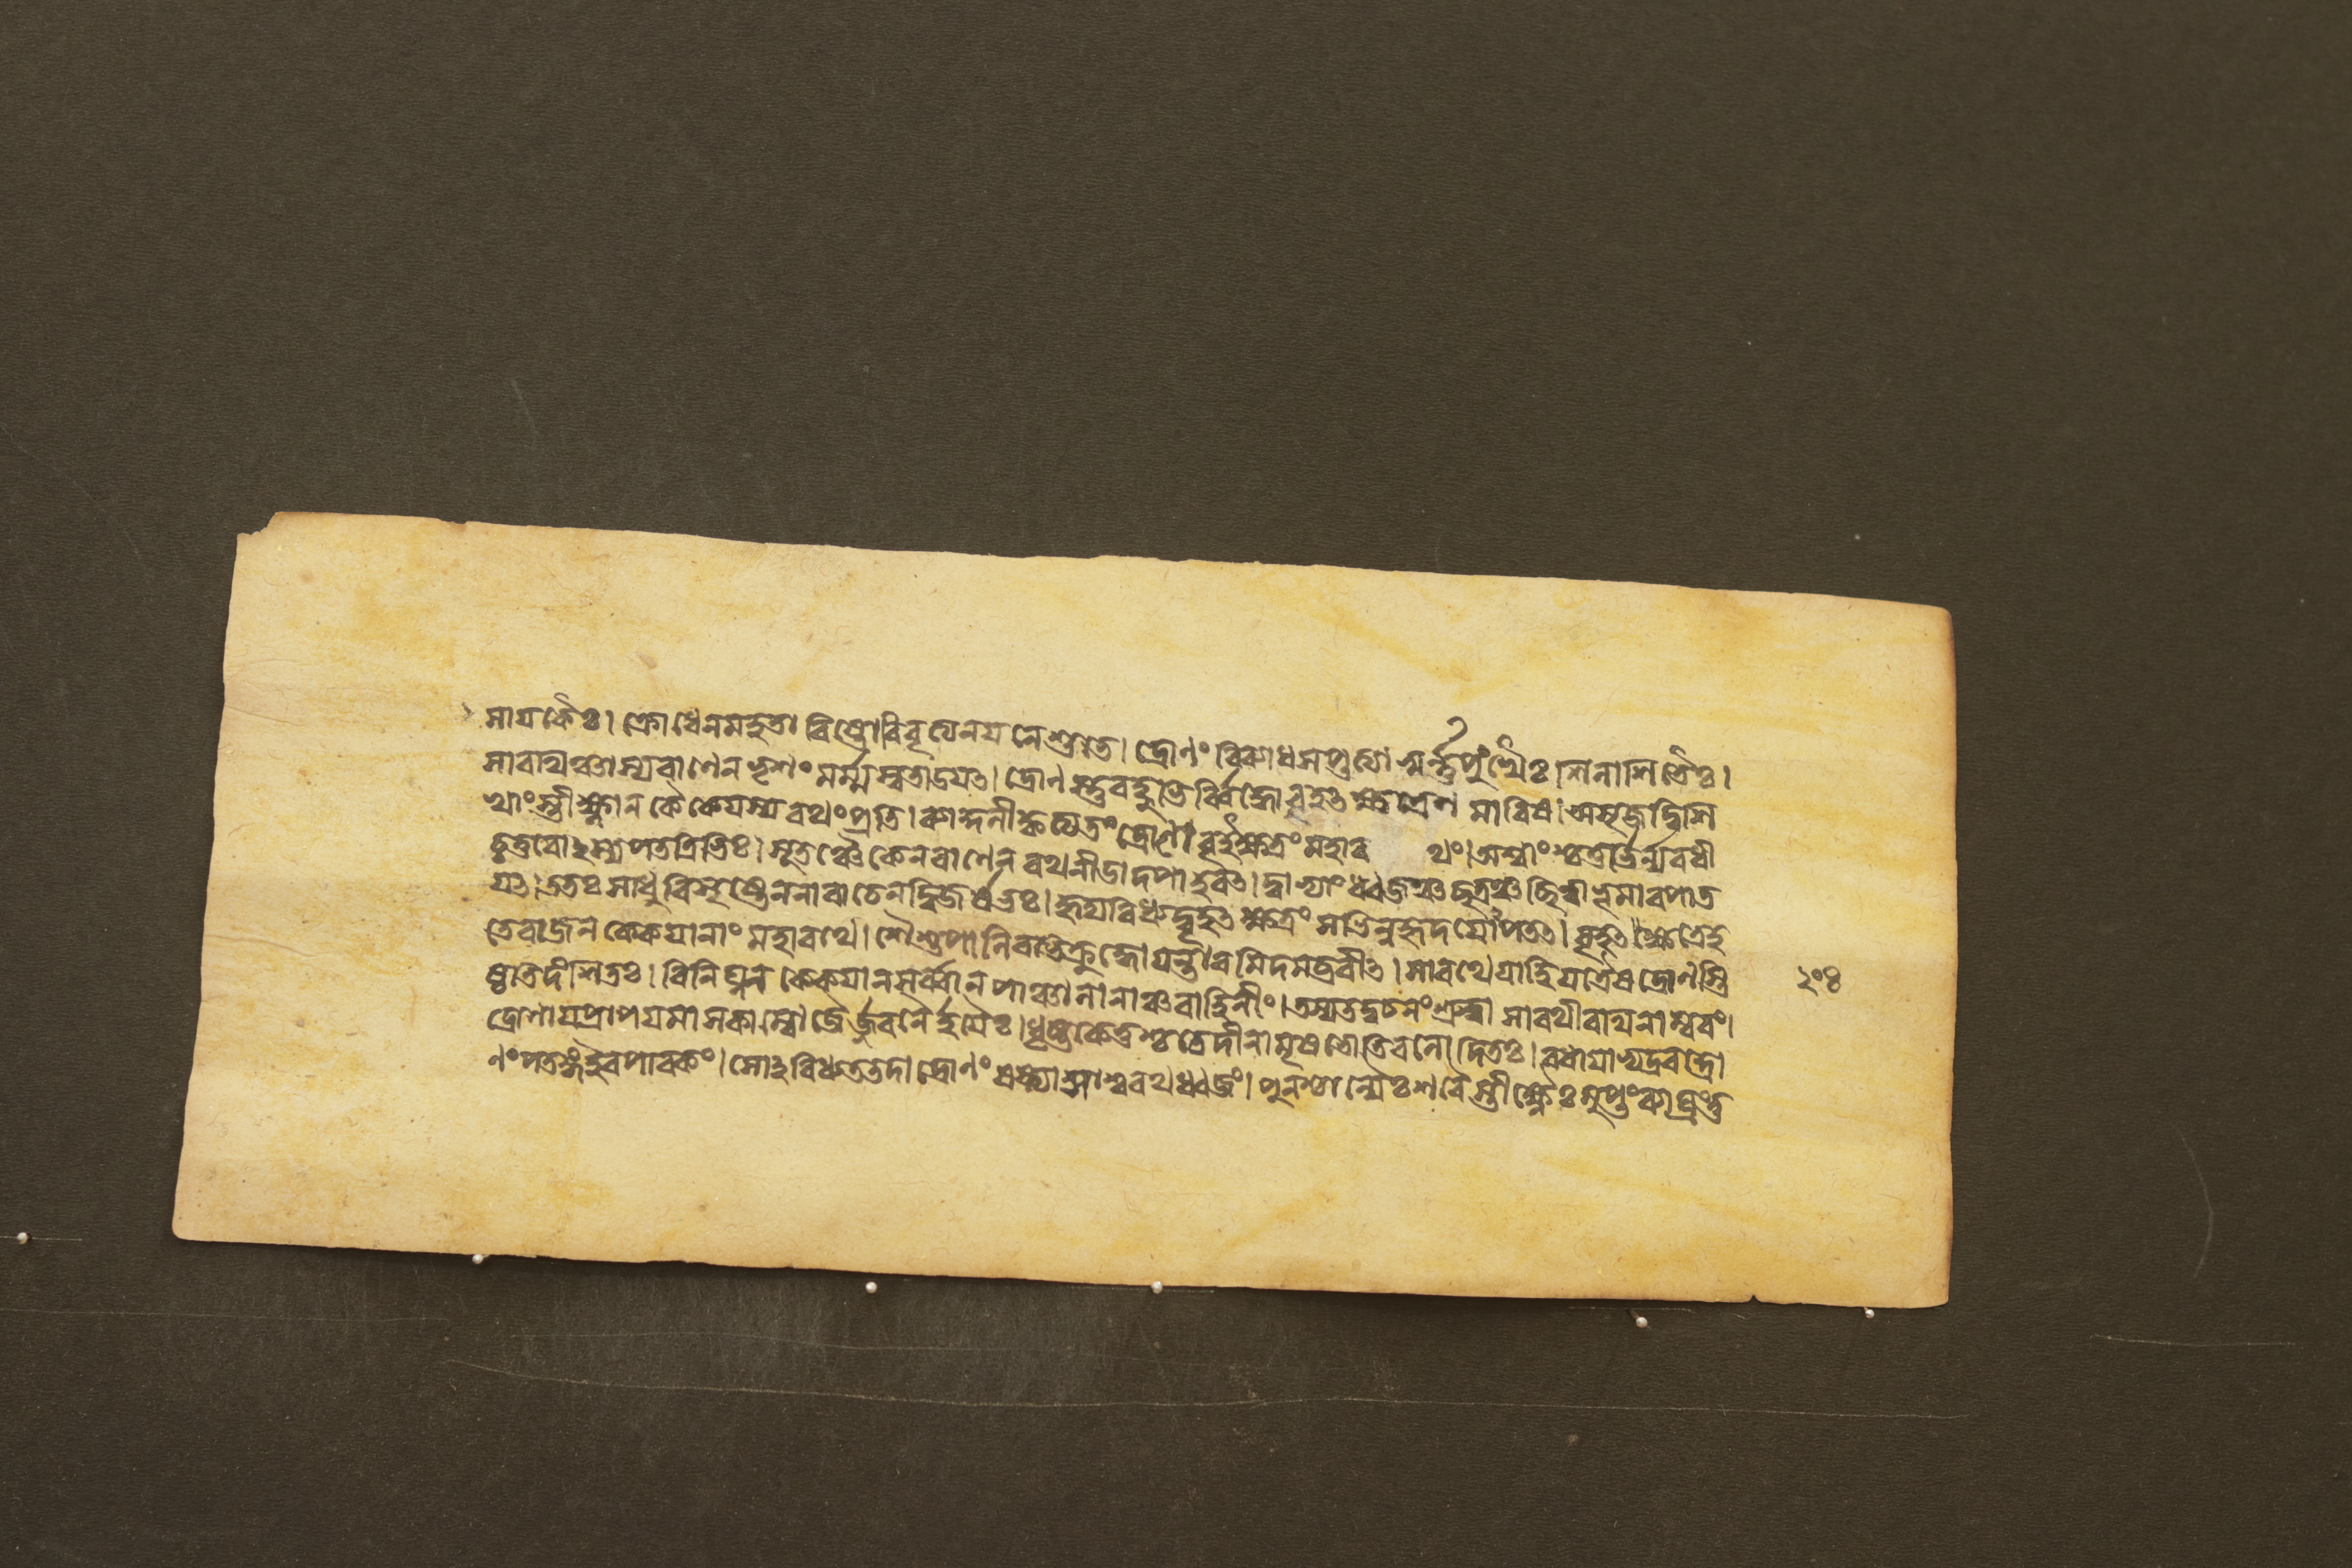 সায়কৈঃ। ক্রোধেনমহতা বিষ্টোবিবৃত্যেনয়নেশুভে। দ্রোণং বিব্যাধসপ্তত্যা স্বর্ন্নপুংখৈঃশিলাশিতৈঃ।
সারথিঞ্চাস্যবাণেন ভৃশং মর্ম্মস্বতাডয়ৎ। দ্রোণস্তুবহুভির্ব্বিদ্ধোবৃহৎক্ষত্রেণ মারিষ। অসৃজদ্বিশি
খাংস্তীক্ষ্ণান কৈকেয়স্যরথংপ্রতি। ব্যাকুলীকৃত্যতং দ্রোণো বৃহৎক্ষত্রং মহার থং। অশ্বাংশ্চতুর্ভির্ন্যবধী
চ্চতুরোঽস্যপতত্রিভিঃ। সূতঞ্চৈকেনবাণেন রথনীডাদপাহরৎ। দ্বাভ্যাংধ্বজঞ্চছত্রঞ্চছিত্বাভূমাবপাত
য়ৎ। ততঃ সাধুবিসৃষ্টেননারাচেনদ্বিজর্ষভঃ। হৃদ্যবিধ্যদ্বৃহৎক্ষত্রং সভিন্নহৃদয়োঽপতৎ। বৃহৎক্ষত্রেহ
তেরাজন কেকয়ানাং মহারথে। শৈশুপালিরভিক্রুদ্ধোয়ন্তারমিদমব্রবীৎ। সারথেয়াহিয়ত্রৈষদ্রোণস্তি
ষ্ঠতিদংশিতঃ। বিনিঘ্নন কেকয়ানসর্ব্বান পাঞ্চালানাঞ্চবাহিনীং। তস্যতদ্বচনংশ্রুত্বা সারথীরথিনাম্বরং।
দ্রোণায়প্রাপয়মাসকাম্বোজৈর্জ্জবনৈর্হয়ৈঃ। ধৃষ্টকেতুশ্চচেদীনামৃষভোতিবলোদিতঃ। বধায়াভ্যদ্রবদ্দ্রো
ণংপতঙ্গইবপাবকং। সোঽবিধ্যততদা দ্রোণং ষষ্ট্যাসাশ্বরথধ্বজং। পুনশ্চান্যৈঃশরৈস্তীক্ষ্ণৈঃসুপ্তংব্যাঘ্রংতু
২০৪